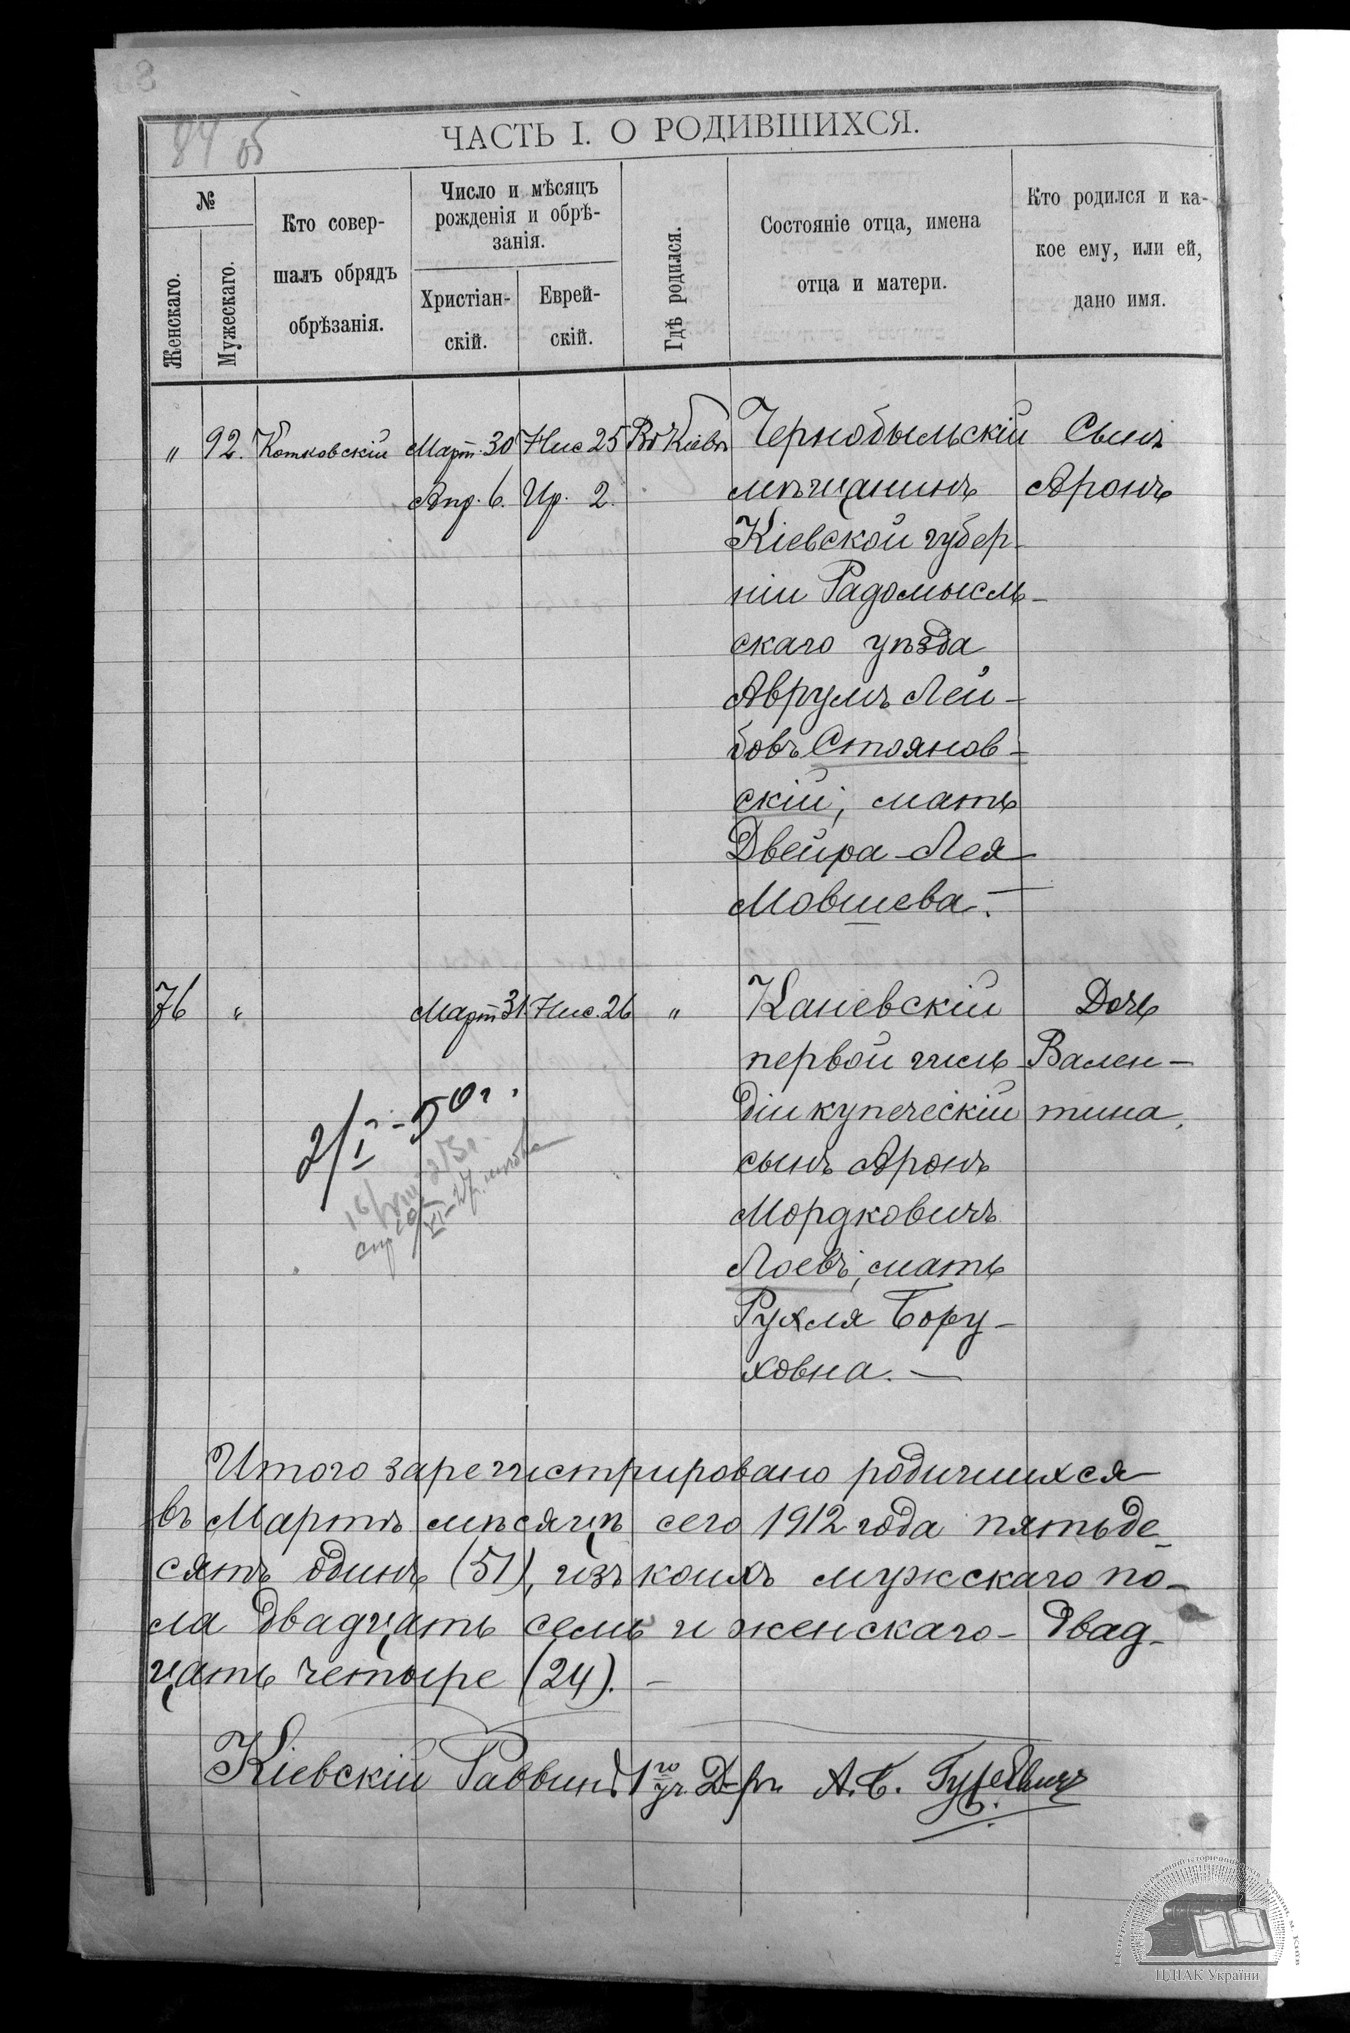 84 об
ЧАСТЬ I. О РОДИВШИХСЯ.
№
Женскаго.
Мужескаго.
Кто совер-
шалъ обрядъ
обрѣзанія.
Число и мѣсяцъ
рожденія и обрѣ-
занія.
Христіан-
скій.
Еврей-
скій.
Гдѣ родился.
Состояніе отца, имена
отца и матери.
Кто родился и ка-
кое ему, или ей,
дано имя.
" 92. Котковскій Март. 30 Нис 25 Въ Кіевѣ Чернобыльскій Сынъ
Апр. 6. Ир. 2. мѣщанинъ Аронъ
Кіевской губер-
ніи Радомысль-
скаго уѣзда
Аврумъ Лей-
бовъ Стоянов-
скій, мать
Двейра-Лея
Мовшева.
76 " Март 31. Нис. 26 " Каневскій Дочь
первой гиль- Вален-
діи купеческій тина.
сынъ Аронъ
Мордковичъ
Лоевъ, мать
Рухля Бору-
ховна. —
2/I - 50 г.
Итого зарегистрировано родившихся
въ Мартѣ мѣсяцѣ сего 1912 года пятьде-
сятъ одинъ (51), изъ коихъ мужскаго по-
ла двадцать семь и женскаго - двад-
цать четыре (24). —
Кіевскій Раввинъ 1го уч. Д-ръ А.Б. Гуревичъ
ЦДІАК України